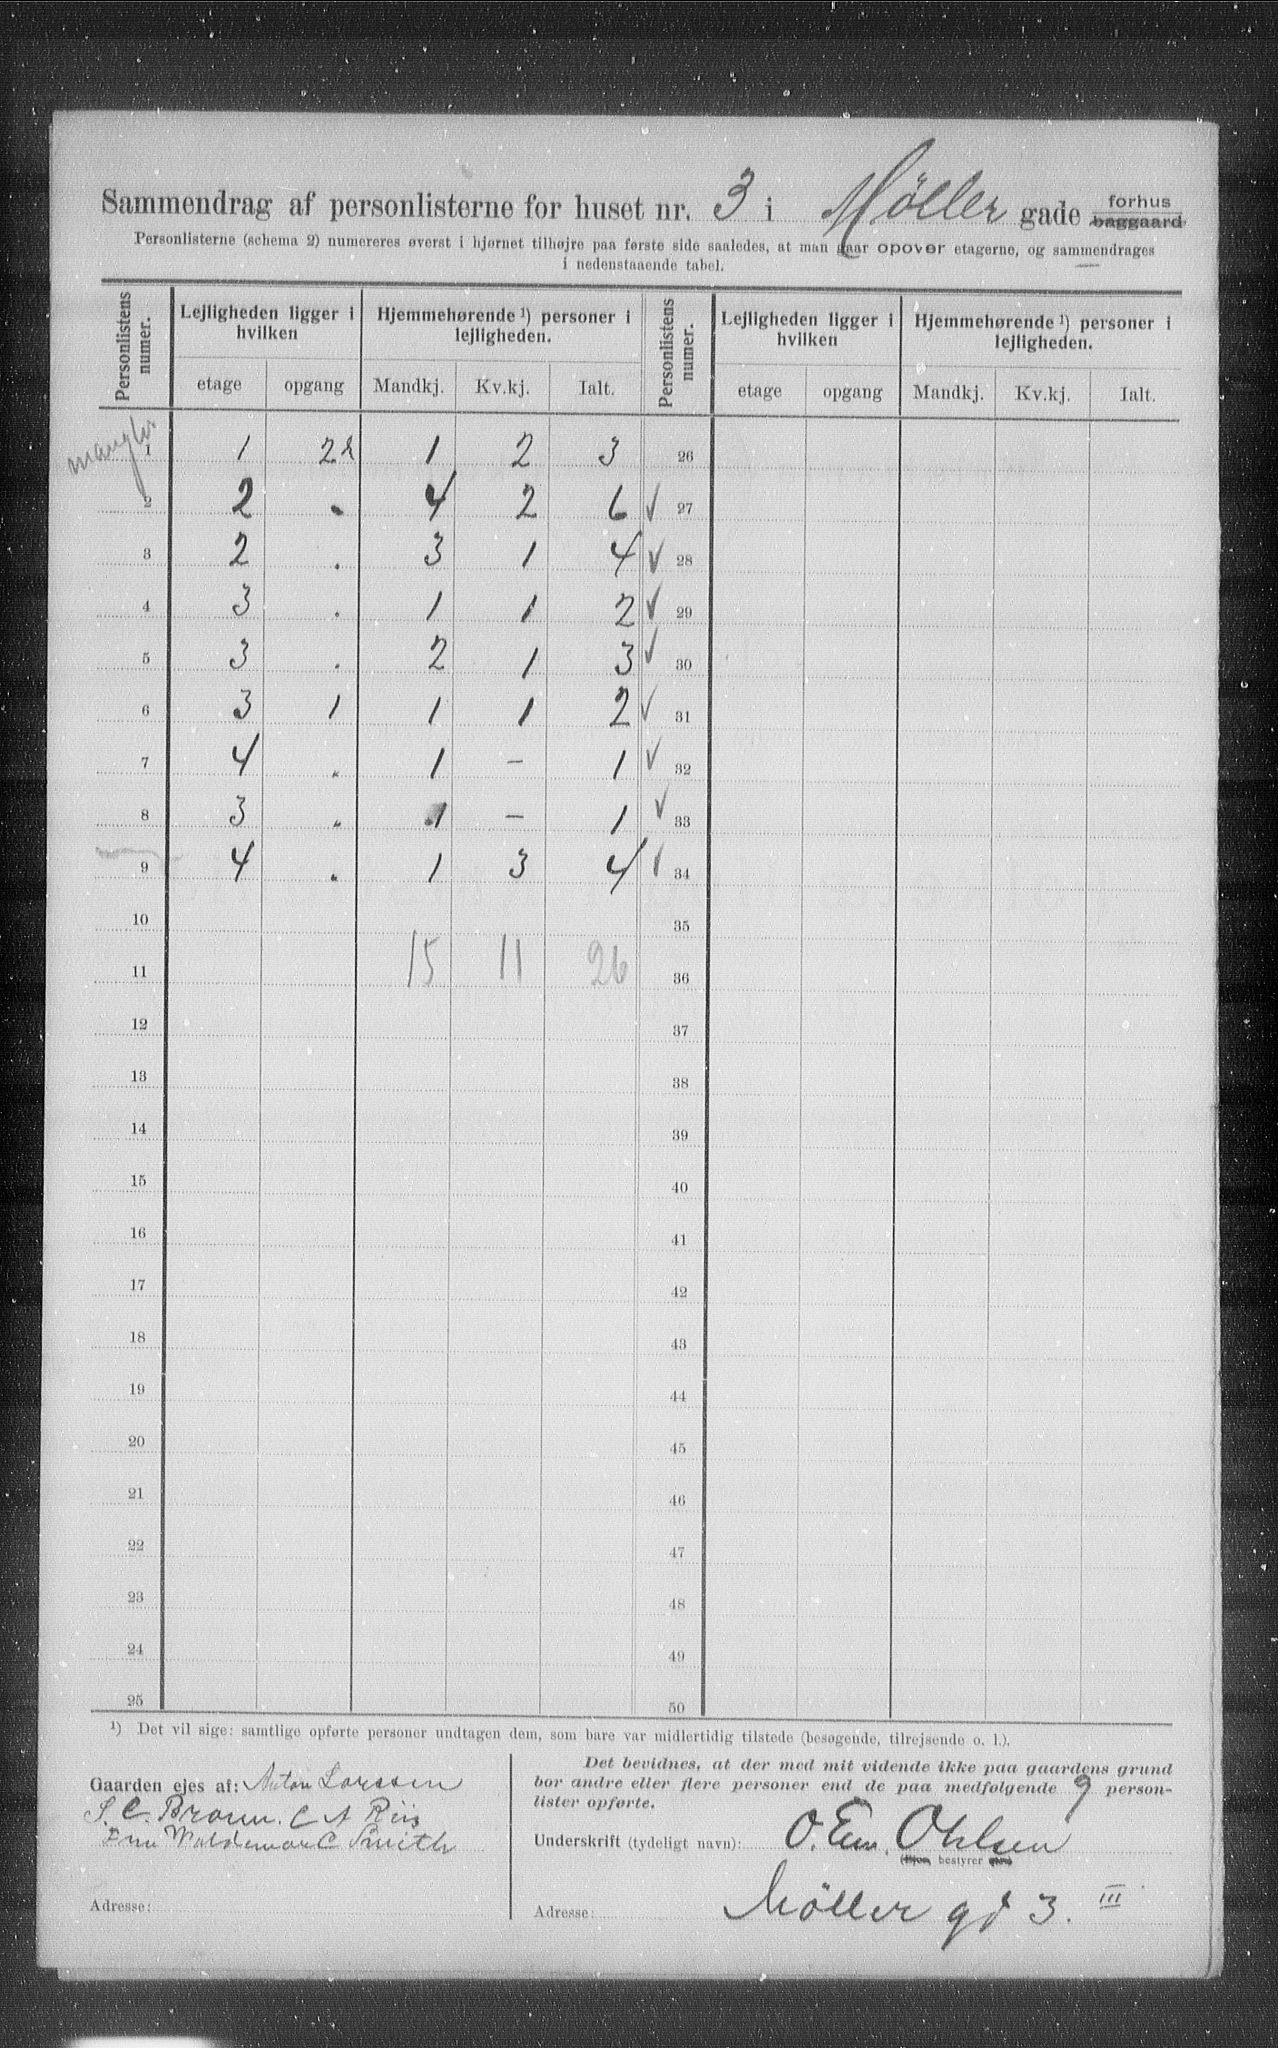 Sammendrag af personlisterne for huset nr. 3 i Møller gade forhus baggaard
Personlisterne (schema 2) numereres øverst i hjørnet tilhøjre paa første side saaledes, at man gaar opover etagerne, og sammendrages
i nedenstaaende tabel.
Personlistens numer. Lejligheden ligger i hvilken Hjemmehørende ¹) personer i lejligheden. Personlistens numer. Lejligheden ligger i hvilken Hjemmehørende ¹) personer i lejligheden.
etage opgang Mandkj. Kv.kj. Ialt. etage opgang Mandkj. Kv.kj. Ialt.
mangler
1 1 2 1 2 3 26
2 2 . 4 2 6 ✓ 27
3 2 . 3 1 4 ✓ 28
4 3 . 1 1 2 ✓ 29
5 3 . 2 1 3 ✓ 30
6 3 1 1 1 2 ✓ 31
7 4 . 1 – 1 ✓ 32
8 3 . 1 – 1 ✓ 33
9 4 . 1 3 4 ✓ 34
10 35
11 15 11 26 36
12 37
13 38
14 39
15 40
16 41
17 42
18 43
19 44
20 45
21 46
22 47
23 48
24 49
25 50
¹) Det vil sige: samtlige opførte personer undtagen dem, som bare var midlertidig tilstede (besøgende, tilrejsende o. l.).
Gaarden ejes af: Anton Larssen
S. C. Braun. C A Riis
Waldemar C Smith
Adresse:
Det bevidnes, at der med mit vidende ikke paa gaardens grund
bor andre eller flere personer end de paa medfølgende 9 person-
lister opførte.
Underskrift (tydeligt navn): O. Em. Ohlsen
(Ejer, bestyrer
Adresse: Møller gd 3. III